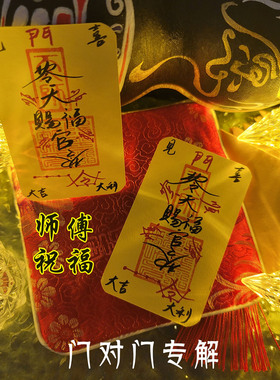 見門喜
天
賜福
官
大吉
大利
見門喜
天
賜福
官
大吉
大利
师傅
祝福
门对门专解